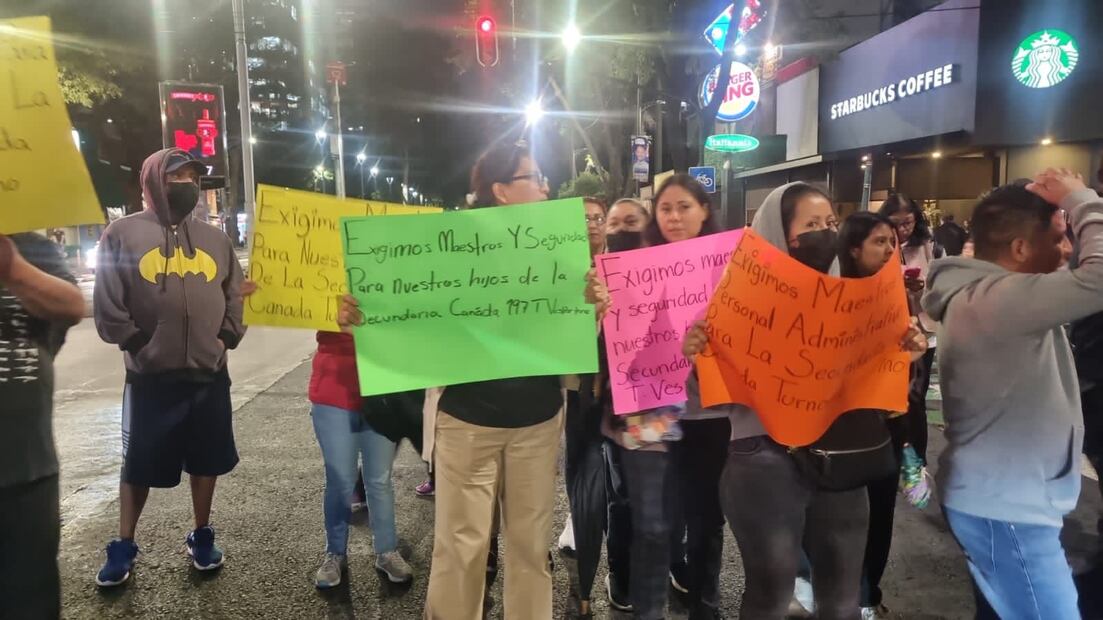 La
da
no
Exigimos
Para Nues
De La Se
Canada
Exigimos Maestros Y Seguridad
Para nuestros hijos de la
Secundaria Canada 197 T Vespertino
Exigimos
y seguridad
nuestros
Secundar
T. Ves
Exigimos Maestro
Personal Administrativo
Para La Se
Turno
BURGER
KING
Italianni's
STARBUCKS COFFEE